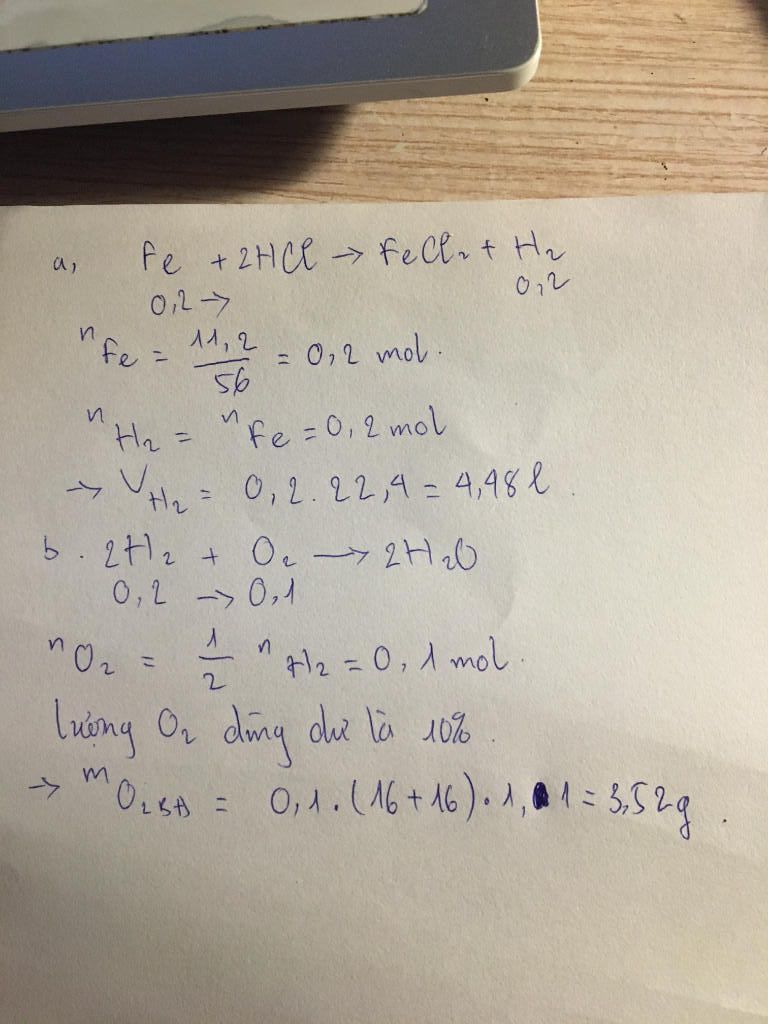 a, Fe + 2HCl → FeCl₂ + H₂
0,2 → 0,2
nFe = 11,2/56 = 0,2 mol.
nH₂ = nFe = 0,2 mol
→ VH₂ = 0,2 . 22,4 = 4,48 l.
b. 2H₂ + O₂ → 2H₂O
0,2 → 0,1
nO₂ = 1/2 nH₂ = 0,1 mol.
lượng O₂ dùng dư là 10%.
→ mO₂ BĐ = 0,1.(16+16).1,1 = 3,52g.